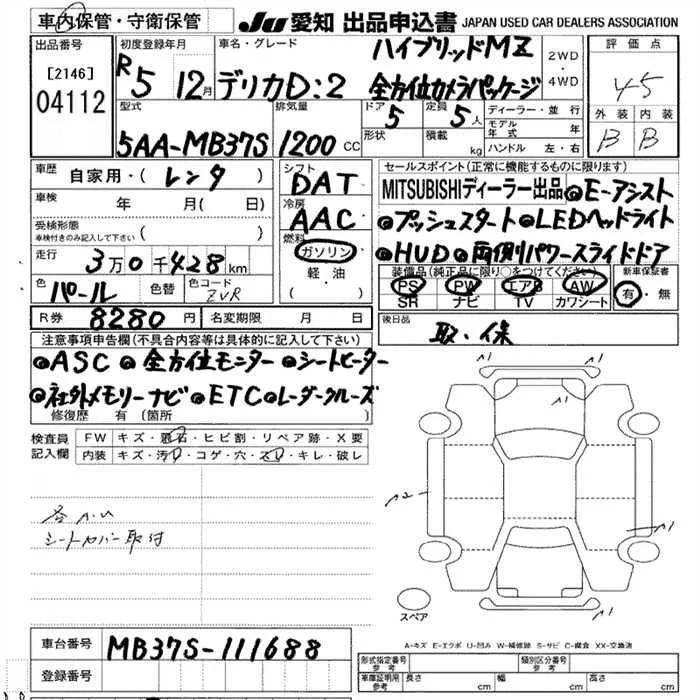 車内保管・守衛保管 JU 愛知 出品申込書 JAPAN USED CAR DEALERS ASSOCIATION
出品番号 初度登録年月 車名・グレード ハイブリッドMZ 2WD・4WD 評価点
[2146] 04112 R5 12月 デリカD:2 全方位カメラパッケージ 45
型式 排気量 ドア 5 定員 5人 ディーラー・並行 外装 内装
5AA-MB37S 1200 CC 形状 積載 kg モデル年式 年 B B
ハンドル 左・右
車歴 自家用・(レンタ) シフト DAT セールスポイント(正常に機能するものに限ります)
車検 年 月( 日) 冷房 AAC MITSUBISHIディーラー出品 ◎E-アシスト
受検形態 車検付きのみ記入して下さい ( ) 燃料 ◎プッシュスタート ◎LEDヘッドライト
走行 3万0千428km ガソリン ◎HUD ◎両側パワースライドドア
軽・油
( )
色 パール 色替 色コード ZVR 装備品(純正品に限り○をつけてください) 新車保証書
PS PW エアB AW 有・無
SR ナビ TV カワシート
R券 8280円 名変期限 月 日 後日品 取・保
注意事項申告欄(不具合内容等は具体的に記入して下さい)
◎ASC ◎全方位モニター ◎シートヒーター
◎社外メモリーナビ ◎ETC ◎レーダークルーズ
修復歴 有 (箇所
検査員記入欄 FW キズ・飛石・ヒビ割・リペア跡・X要
内装 キズ・汚れ・コゲ・穴・スレ・キレ・破レ
シートカバー取付
A1
A1
A2
A1
A1
スペア
A-キズ E-エクボ U-凹み W-補修跡 S-サビ C-腐食 XX-交換済
車台番号 MB37S-111688
登録番号
形式指定番号 参考 類別区分番号 参考
車庫証明用 参考 長さ cm 幅 cm 高さ cm